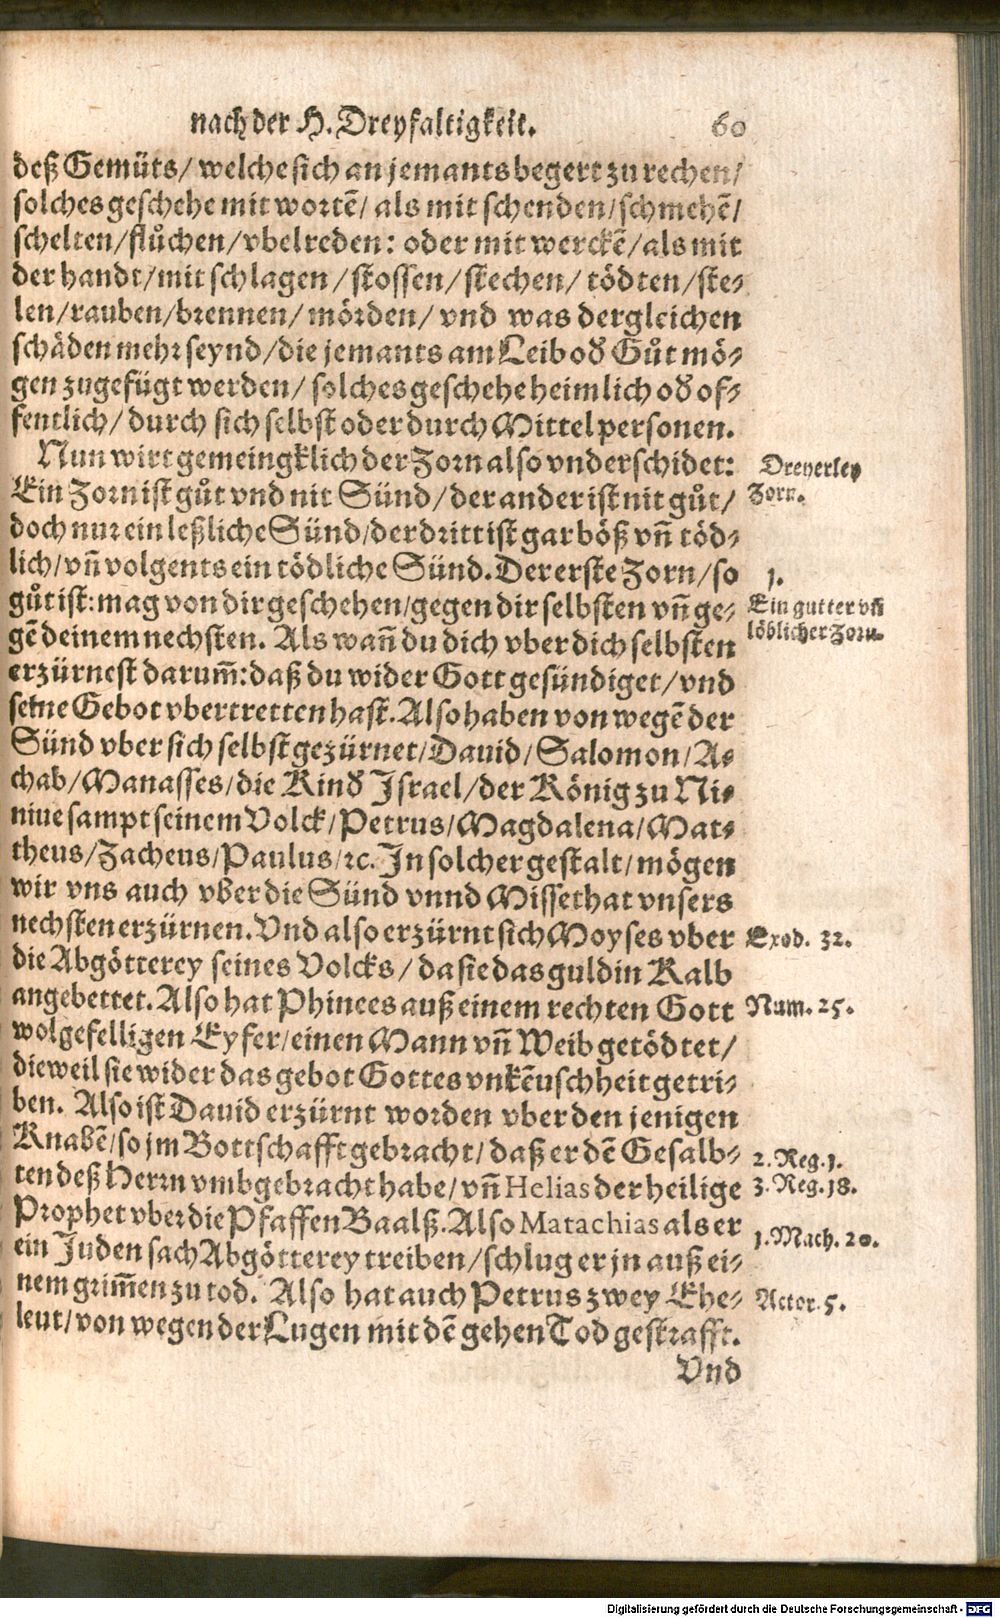 nach der H. Dreyfaltigkeit. 60
deß Gemüts/ welche sich an jemants begert zu rechen/
solches geschehe mit wortẽ/ als mit schenden/schmehẽ/
schelten/flůchen/vbelreden: oder mit werckẽ/als mit
der handt/mit schlagen/stossen/stechen/ tödten/ste-
len/rauben/brennen/ mörden/ vnd was dergleichen
schäden mehr seynd/die jemants am Leib od Gůt mö-
gen zugefügt werden/ solches geschehe heimlich od of-
fentlich/ durch sich selbst oder durch Mittelpersonen.
Nun wirt gemeingklich der Zorn also vnderschidet:
Dreyerley
Ein Zorn ist gůt vnd nit Sünd/der ander ist nit gůt/
Zorn.
doch nur ein leßliche Sünd/der dritt ist gar böß vñ töd-
lich/vñ volgents ein tödliche Sünd. Der erste Zorn/so
1.
gůt ist: mag von dir geschehen/gegen dir selbsten vñ ge-
Ein gutter vñ
gẽ deinem nechsten. Als wañ du dich vber dich selbsten
löblicher Zorn.
erzürnest darum̃: daß du wider Gott gesündiget/vnd
seine Gebot vbertretten hast. Also haben von wegẽ der
Sünd vber sich selbst gezürnet/Dauid/Salomon/A-
chab/Manasses/die Kind Israel/der König zu Ni-
niue sampt seinem Volck/Petrus/Magdalena/Mat-
theus/Zacheus/Paulus/ꝛc. In solcher gestalt/mögen
wir vns auch vber die Sünd vnnd Missethat vnsers
nechsten erzürnen. Vnd also erzürnt sich Moyses vber
Exod. 32.
die Abgötterey seines Volcks/ da sie das guldin Kalb
angebettet. Also hat Phinees auß einem rechten Gott
Num. 25.
wolgefelligen Eyfer/einen Mann vñ Weib getödtet/
dieweil sie wider das gebot Gottes vnkẽuschheit getri-
ben. Also ist Dauid erzürnt worden vber den jenigen
Knabẽ/so jm Bottschafft gebracht/daß er dẽ Gesalb-
2. Reg. 1.
ten deß Herrn vmbgebracht habe/vñ Helias der heilige
3. Reg. 18.
Prophet vber die Pfaffen Baalß. Also Matachias als er
1. Mach. 20.
ein Juden sach Abgötterey treiben/schlug er jn auß ei-
nem grim̃en zu tod. Also hat auch Petrus zwey Ehe-
Actor. 5.
leut/von wegen der Lugen mit dẽ gehen Tod gestrafft.
Vnd
Digitalisierung gefördert durch die Deutsche Forschungsgemeinschaft - DFG